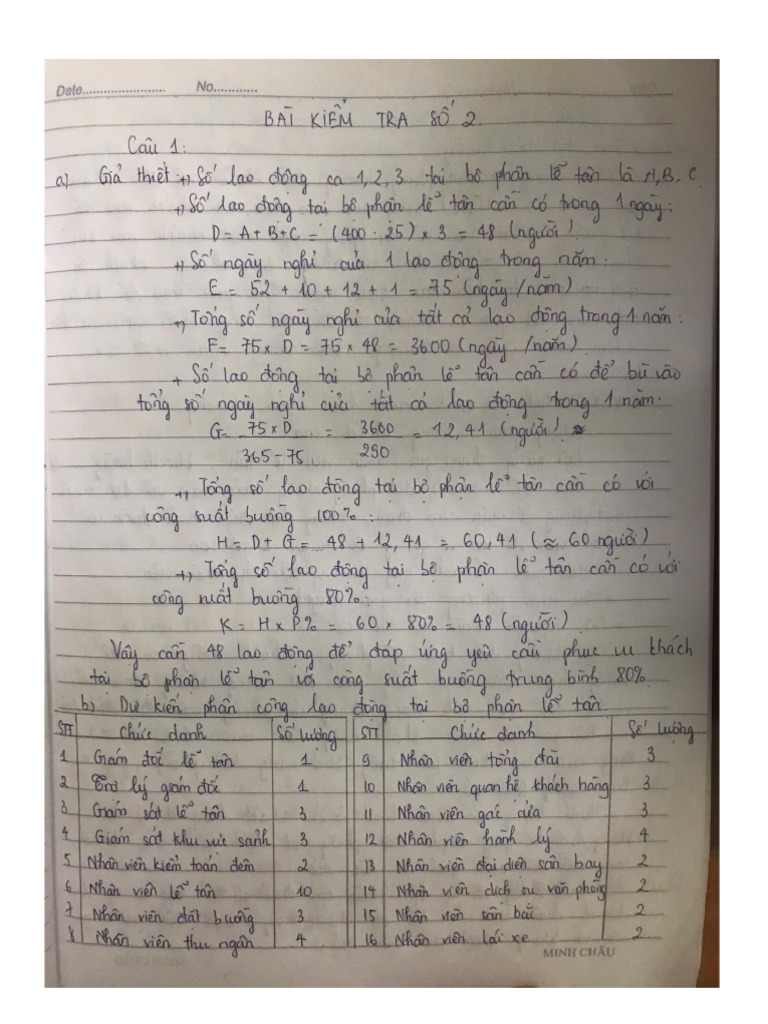 Date........................ No............
BÀI KIỂM TRA SỐ 2.
Câu 1:
a) Giả thiết: +, Số lao động ca 1, 2, 3 tại bộ phận lễ tân là A, B, C.
+, Số lao động tại bộ phận lễ tân cần có trong 1 ngày:
D = A + B + C = (400 : 25) x 3 = 48 (người)
+, Số ngày nghỉ của 1 lao động trong năm:
E = 52 + 10 + 12 + 1 = 75 (ngày/năm)
+, Tổng số ngày nghỉ của tất cả lao động trong 1 năm:
F = 75 x D = 75 x 48 = 3600 (ngày /năm)
+ Số lao động tại bộ phận lễ tân cần có để bù vào
tổng số ngày nghỉ của tất cả lao động trong 1 năm.
G = 75 x D / 365 - 75 = 3600 / 290 = 12,41 (người)
+, Tổng số lao động tại bộ phận lễ tân cần có với
công suất buồng 100%:
H = D + G = 48 + 12,41 = 60,41 (≈ 60 người)
+, Tổng số lao động tại bộ phận lễ tân cần có với
công suất buồng 80%:
K = H x P% = 60 x 80% = 48 (người)
Vậy cần 48 lao động để đáp ứng yêu cầu phục vụ khách
tại bộ phận lễ tân với công suất buồng trung bình 80%
b) Dự kiến phân công lao động tại bộ phận lễ tân.
STT Chức danh Số lượng STT Chức danh Số lượng
1 Giám đốc lễ tân 1 9 Nhân viên tổng đài 3
2 Trợ lý giám đốc 1 10 Nhân viên quan hệ khách hàng 3
3 Giám sát lễ tân 3 11 Nhân viên gác cửa 3
4 Giám sát khu vực sảnh 3 12 Nhân viên hành lý 4
5 Nhân viên kiểm toán đêm 2 13 Nhân viên đại diện sân bay 2
6 Nhân viên lễ tân 10 14 Nhân viên dịch vụ văn phòng 2
7 Nhân viên đặt buồng 3 15 Nhân viên sân bãi 2
8 Nhân viên thu ngân 4 16 Nhân viên lái xe 2
MINH CHÂU